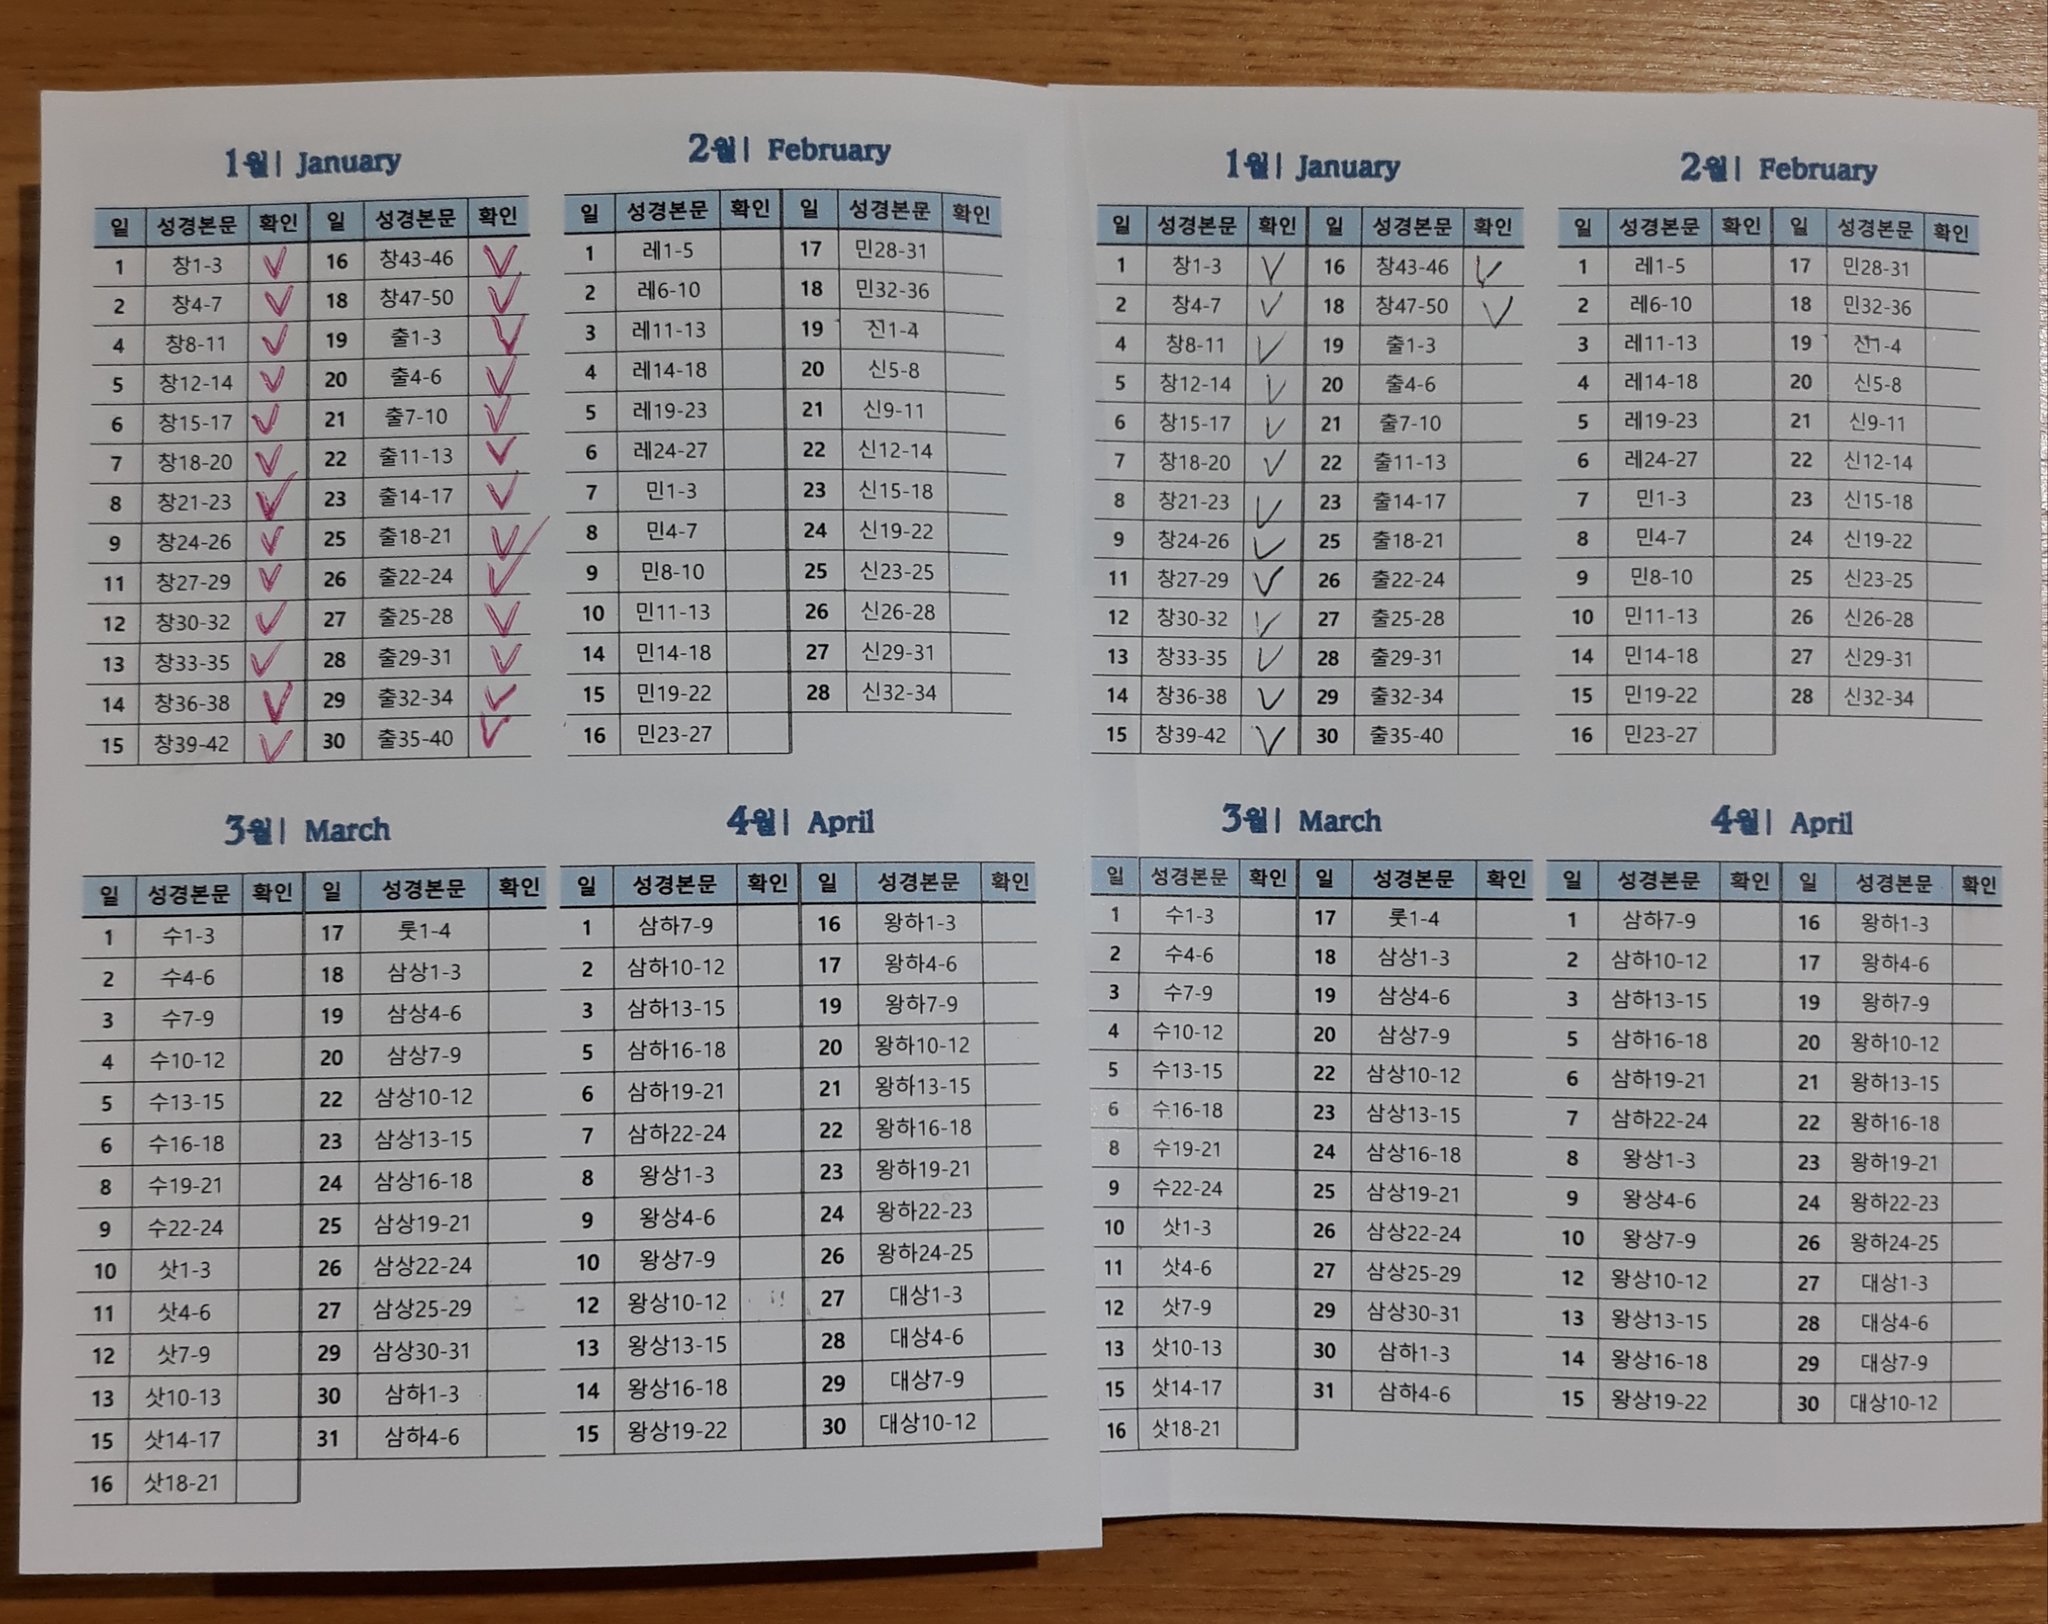 1월| January
일 성경본문 확인 일 성경본문 확인
1 창1-3 ✓ 16 창43-46 ✓
2 창4-7 ✓ 18 창47-50 ✓
4 창8-11 ✓ 19 출1-3 ✓
5 창12-14 ✓ 20 출4-6 ✓
6 창15-17 ✓ 21 출7-10 ✓
7 창18-20 ✓ 22 출11-13 ✓
8 창21-23 ✓ 23 출14-17 ✓
9 창24-26 ✓ 25 출18-21 ✓
11 창27-29 ✓ 26 출22-24 ✓
12 창30-32 ✓ 27 출25-28 ✓
13 창33-35 ✓ 28 출29-31 ✓
14 창36-38 ✓ 29 출32-34 ✓
15 창39-42 ✓ 30 출35-40 ✓
2월| February
일 성경본문 확인 일 성경본문 확인
1 레1-5 17 민28-31
2 레6-10 18 민32-36
3 레11-13 19 진1-4
4 레14-18 20 신5-8
5 레19-23 21 신9-11
6 레24-27 22 신12-14
7 민1-3 23 신15-18
8 민4-7 24 신19-22
9 민8-10 25 신23-25
10 민11-13 26 신26-28
14 민14-18 27 신29-31
15 민19-22 28 신32-34
16 민23-27
3월| March
일 성경본문 확인 일 성경본문 확인
1 수1-3 17 룻1-4
2 수4-6 18 삼상1-3
3 수7-9 19 삼상4-6
4 수10-12 20 삼상7-9
5 수13-15 22 삼상10-12
6 수16-18 23 삼상13-15
8 수19-21 24 삼상16-18
9 수22-24 25 삼상19-21
10 삿1-3 26 삼상22-24
11 삿4-6 27 삼상25-29
12 삿7-9 29 삼상30-31
13 삿10-13 30 삼하1-3
15 삿14-17 31 삼하4-6
16 삿18-21
4월| April
일 성경본문 확인 일 성경본문 확인
1 삼하7-9 16 왕하1-3
2 삼하10-12 17 왕하4-6
3 삼하13-15 19 왕하7-9
5 삼하16-18 20 왕하10-12
6 삼하19-21 21 왕하13-15
7 삼하22-24 22 왕하16-18
8 왕상1-3 23 왕하19-21
9 왕상4-6 24 왕하22-23
10 왕상7-9 26 왕하24-25
12 왕상10-12 27 대상1-3
13 왕상13-15 28 대상4-6
14 왕상16-18 29 대상7-9
15 왕상19-22 30 대상10-12
1월| January
일 성경본문 확인 일 성경본문 확인
1 창1-3 ✓ 16 창43-46 ✓
2 창4-7 ✓ 18 창47-50 ✓
4 창8-11 ✓ 19 출1-3
5 창12-14 ✓ 20 출4-6
6 창15-17 ✓ 21 출7-10
7 창18-20 ✓ 22 출11-13
8 창21-23 ✓ 23 출14-17
9 창24-26 ✓ 25 출18-21
11 창27-29 ✓ 26 출22-24
12 창30-32 ✓ 27 출25-28
13 창33-35 ✓ 28 출29-31
14 창36-38 ✓ 29 출32-34
15 창39-42 ✓ 30 출35-40
2월| February
일 성경본문 확인 일 성경본문 확인
1 레1-5 17 민28-31
2 레6-10 18 민32-36
3 레11-13 19 1-4
4 레14-18 20 신5-8
5 레19-23 21 신9-11
6 레24-27 22 신12-14
7 민1-3 23 신15-18
8 민4-7 24 신19-22
9 민8-10 25 신23-25
10 민11-13 26 신26-28
14 민14-18 27 신29-31
15 민19-22 28 신32-34
16 민23-27
3월| March
일 성경본문 확인 일 성경본문 확인
1 수1-3 17 룻1-4
2 수4-6 18 삼상1-3
3 수7-9 19 삼상4-6
4 수10-12 20 삼상7-9
5 수13-15 22 삼상10-12
6 수16-18 23 삼상13-15
8 수19-21 24 삼상16-18
9 수22-24 25 삼상19-21
10 삿1-3 26 삼상22-24
11 삿4-6 27 삼상25-29
12 삿7-9 29 삼상30-31
13 삿10-13 30 삼하1-3
15 삿14-17 31 삼하4-6
16 삿18-21
4월| April
일 성경본문 확인 일 성경본문 확인
1 삼하7-9 16 왕하1-3
2 삼하10-12 17 왕하4-6
3 삼하13-15 19 왕하7-9
5 삼하16-18 20 왕하10-12
6 삼하19-21 21 왕하13-15
7 삼하22-24 22 왕하16-18
8 왕상1-3 23 왕하19-21
9 왕상4-6 24 왕하22-23
10 왕상7-9 26 왕하24-25
12 왕상10-12 27 대상1-3
13 왕상13-15 28 대상4-6
14 왕상16-18 29 대상7-9
15 왕상19-22 30 대상10-12